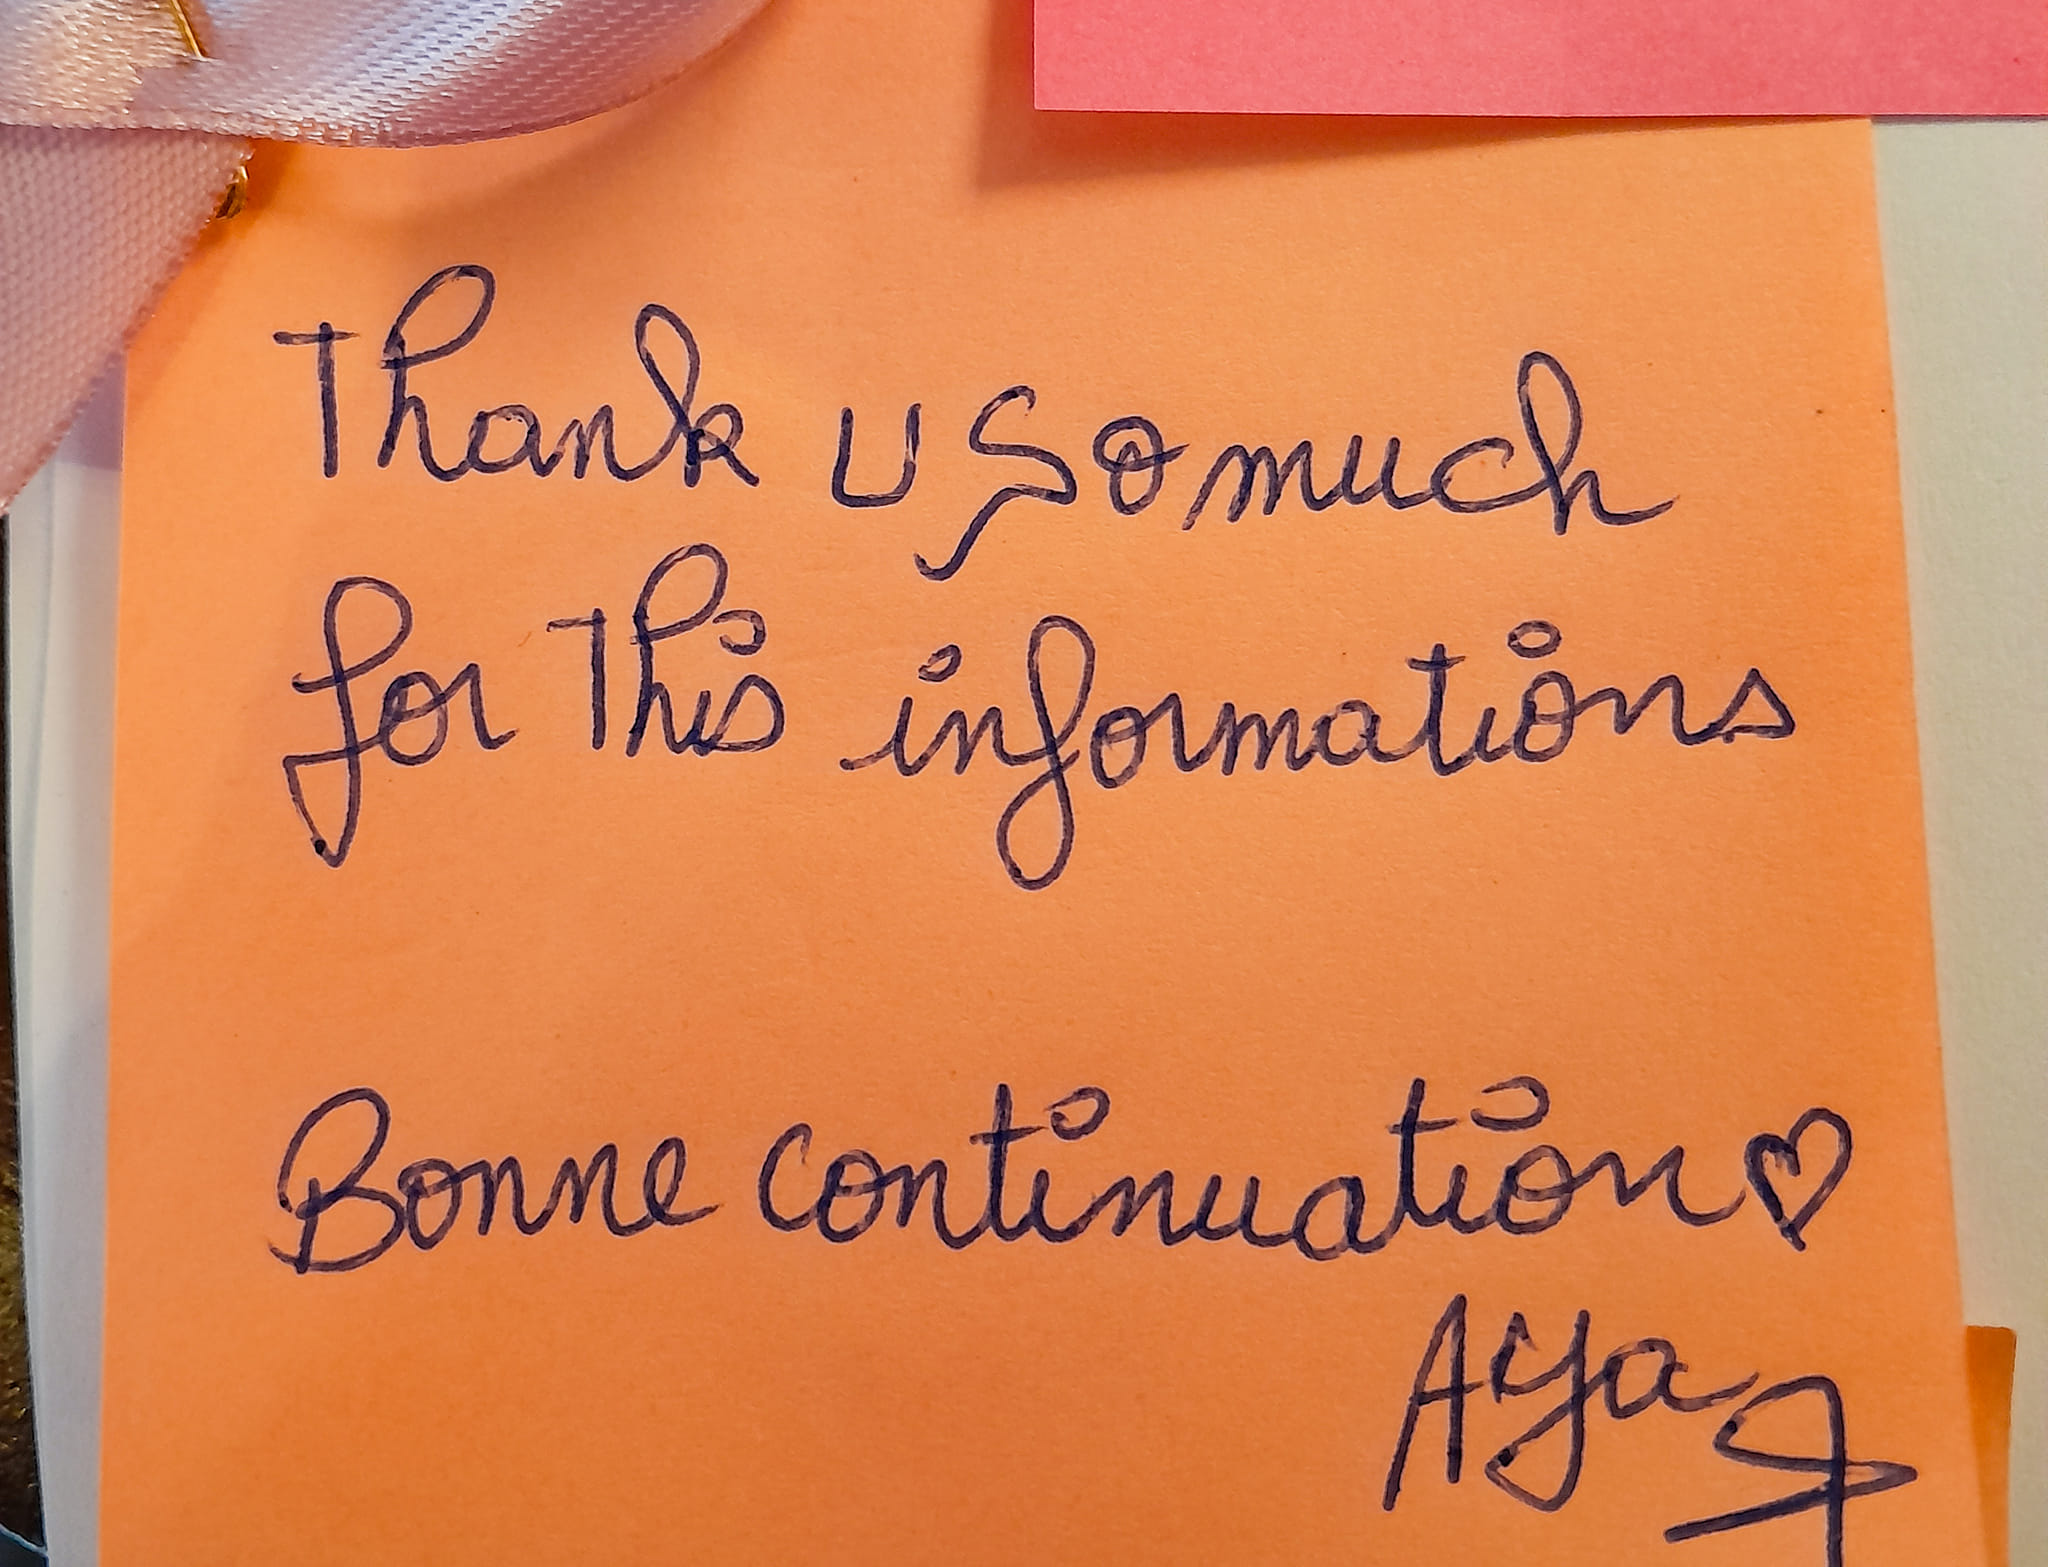 Thank u so much
for this informations
Bonne continuation ♡
Aya